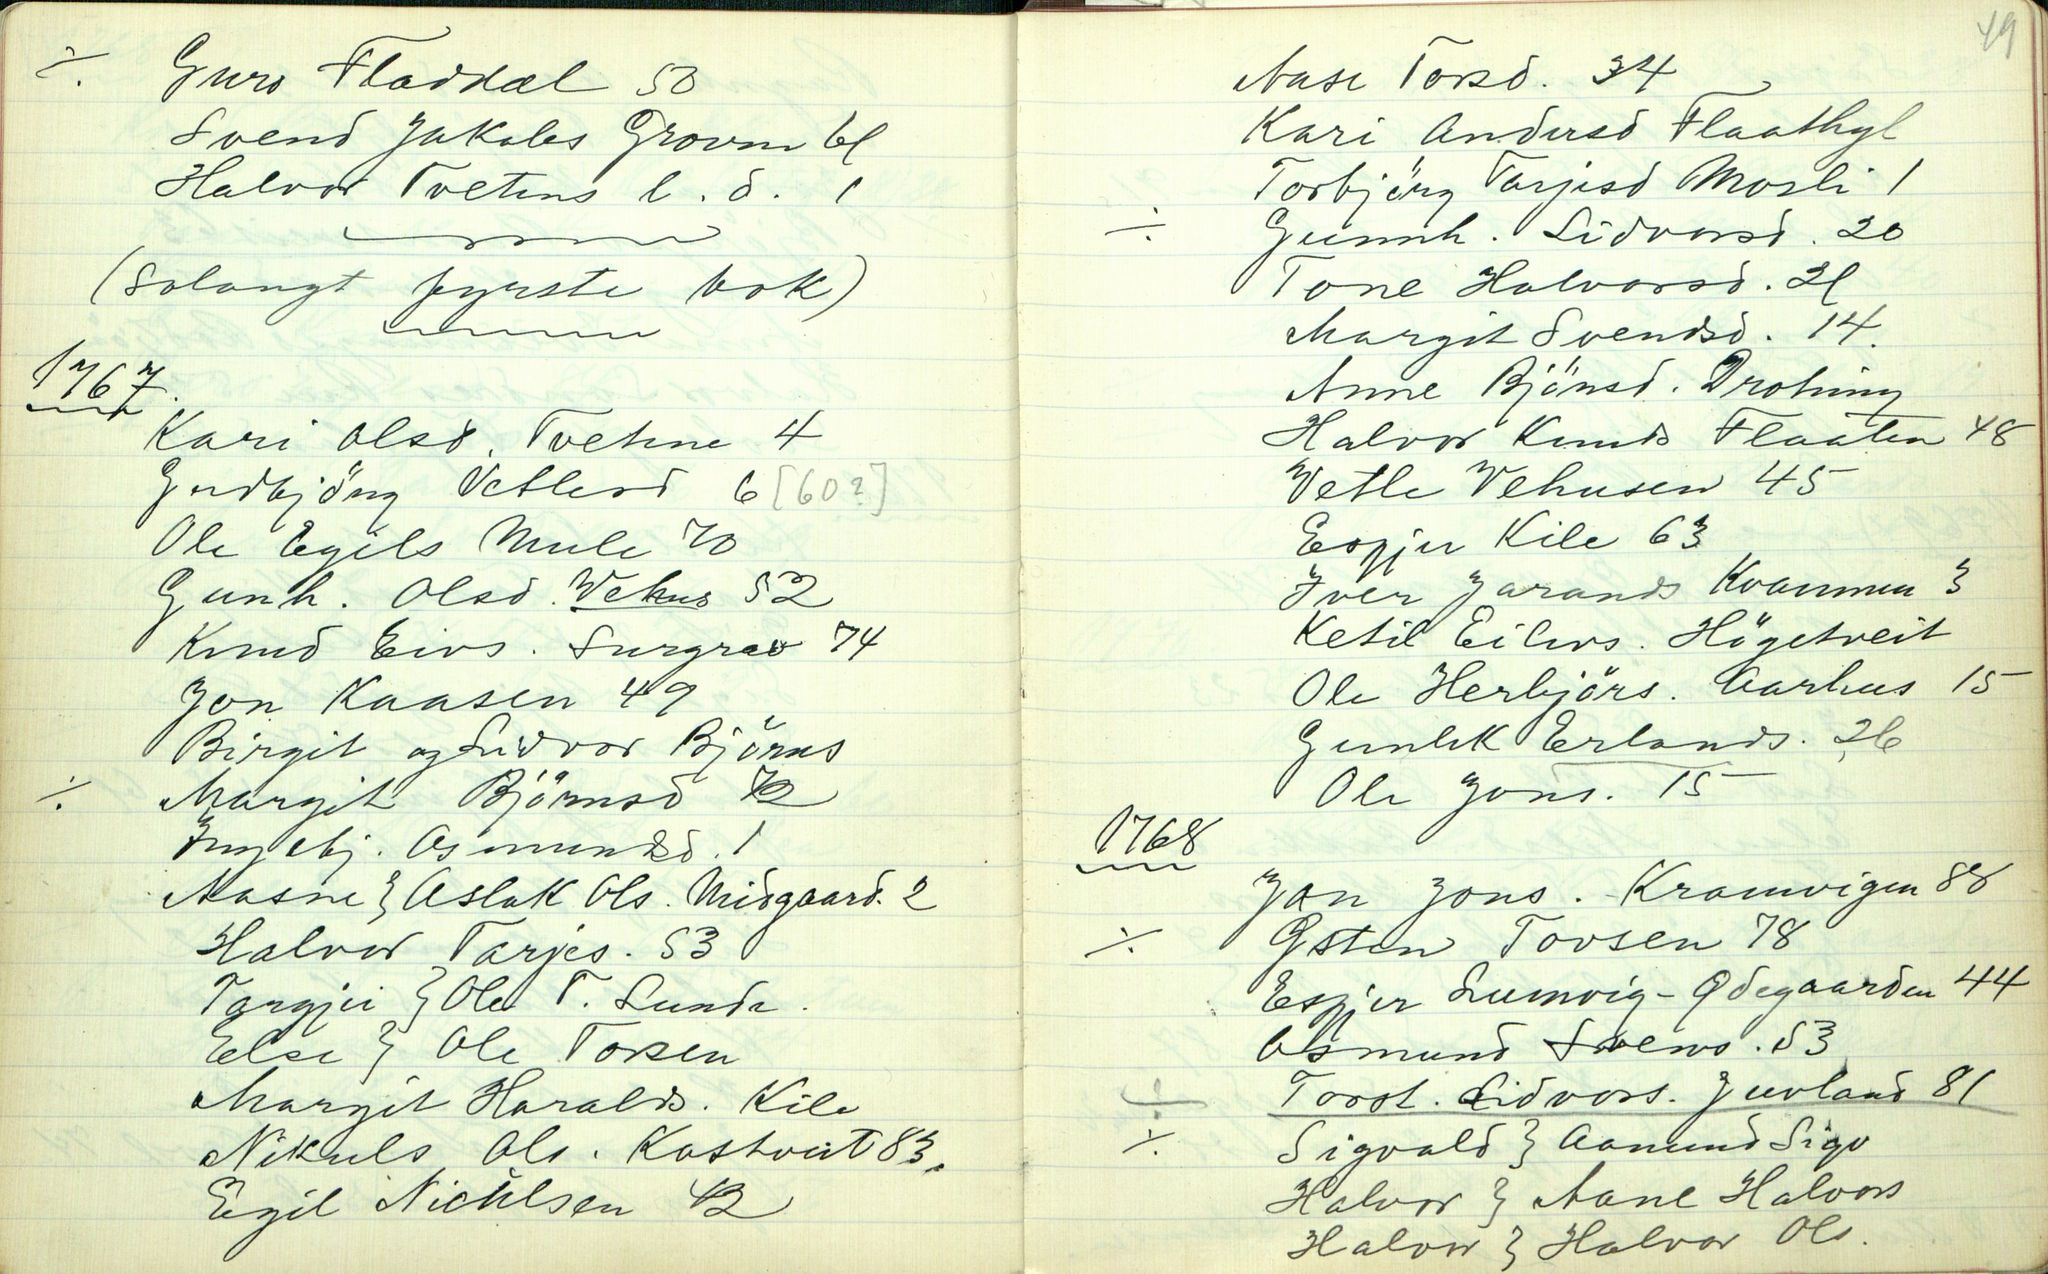 ÷ Guro Fladdal 50
Svend Jakobs Grovum 61
Halvor Tveitens b. d. 1
(Solangt fyrste bok)
1767.
Kari Olsd. Tveitene 4
Gudbjörg Vetlesd 6 [60?]
Ole Egils Mule 70
Gunh. Olsd. Vehus 52
Knud Eivs. Surgrav 74
Jon Kaasen 49
Birgit og Lidvor Björns
÷ Margit Björnsd 72
Ingebj. Asmundsd. 1
Aasne } Aslak Ols. Midgaard. 2
Halvor Tarjes. 53
Targjei } Ole T. Lunde.
Else } Ole Torsen
Margit Haralds. Kile
Nikuls Ols. Kostveit 83.
Egil Nichlsen 42
49
Aase Torsd. 34
Kari Andersd Flaathyl
Torbjörg Tarjesd Mosli 1
÷ Gunnh. Lidvorsd. 20
Tone Halvorsd. 21
Margit Svendsd. 14.
Anne Bjönsd. Drotning
Halvor Knuds Flaaten 48
Vetle Vehusen 45
Espjer Kile 63
Iver Jarands Kvammen 3
Ketil Eilivs. Högetveit
Ole Herbjörs. Aarhus 15
Gunlek Erlands. 26
Ole Jons. 15
1768
Jon Jons. Kramvigen 88
÷ Østen Tovsen 78
Espjer Lumvig-Ødegaarden 44
Osmund Svens. 53
÷ Torst. Lidvors. Juvland 81
÷ Sigvald } Aamund Sigv
Halvor } Aane Halvors
Halvor } Halvor Ols.